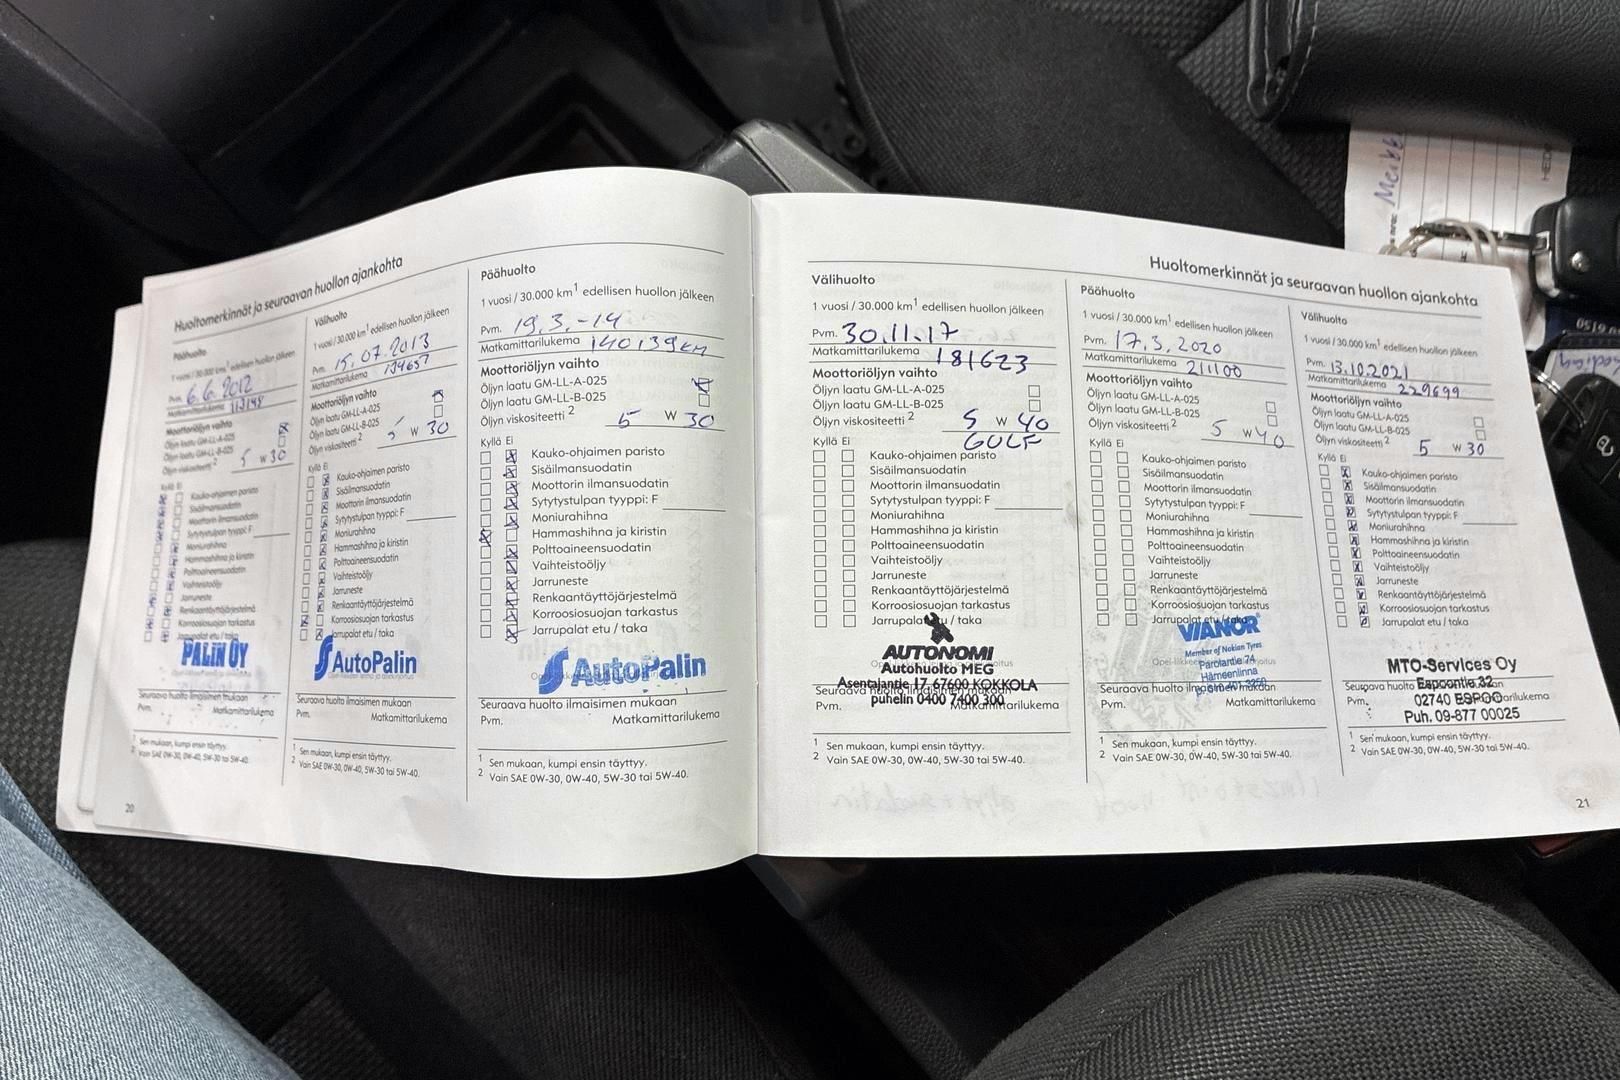 Huoltomerkinnät ja seuraavan huollon ajankohta
Päähuolto
1 vuosi / 30.000 km1 edellisen huollon jälkeen
Pvm. 6.6.2012
Matkamittarilukema
Moottoriöljyn vaihto
Öljyn laatu GM-LL-A-025
Öljyn laatu GM-LL-B-025
Öljyn viskositeetti 2 5 W 30
Kyllä Ei
Kauko-ohjaimen paristo
Sisäilmansuodatin
Moottorin ilmansuodatin
Sytytystulpan tyyppi: F
Moniurahihna
Hammashihna ja kiristin
Polttoaineensuodatin
Vaihteistoöljy
Jarruneste
Renkaantäyttöjärjestelmä
Korroosiosuojan tarkastus
Jarrupalat etu / taka
PALIN OY
Seuraava huolto ilmaisimen mukaan
Pvm. Matkamittarilukema
1 Sen mukaan, kumpi ensin täyttyy.
2 Vain SAE 0W-30, 0W-40, 5W-30 tai 5W-40.
20
Välihuolto
1 vuosi / 30.000 km1 edellisen huollon jälkeen
Pvm. 15.07.2013
Matkamittarilukema 134657
Moottoriöljyn vaihto
Öljyn laatu GM-LL-A-025
Öljyn laatu GM-LL-B-025
Öljyn viskositeetti 2 5 W 30
Kyllä Ei
Kauko-ohjaimen paristo
Sisäilmansuodatin
Moottorin ilmansuodatin
Sytytystulpan tyyppi: F
Moniurahihna
Hammashihna ja kiristin
Polttoaineensuodatin
Vaihteistoöljy
Jarruneste
Renkaantäyttöjärjestelmä
Korroosiosuojan tarkastus
Jarrupalat etu / taka
AutoPalin
Seuraava huolto ilmaisimen mukaan
Pvm. Matkamittarilukema
1 Sen mukaan, kumpi ensin täyttyy.
2 Vain SAE 0W-30, 0W-40, 5W-30 tai 5W-40.
Päähuolto
1 vuosi / 30.000 km1 edellisen huollon jälkeen
Pvm. 19.3.-14
Matkamittarilukema 140139KM
Moottoriöljyn vaihto
Öljyn laatu GM-LL-A-025
Öljyn laatu GM-LL-B-025
Öljyn viskositeetti 2 5 W 30
Kyllä Ei
Kauko-ohjaimen paristo
Sisäilmansuodatin
Moottorin ilmansuodatin
Sytytystulpan tyyppi: F
Moniurahihna
Hammashihna ja kiristin
Polttoaineensuodatin
Vaihteistoöljy
Jarruneste
Renkaantäyttöjärjestelmä
Korroosiosuojan tarkastus
Jarrupalat etu / taka
AutoPalin
Seuraava huolto ilmaisimen mukaan
Pvm. Matkamittarilukema
1 Sen mukaan, kumpi ensin täyttyy.
2 Vain SAE 0W-30, 0W-40, 5W-30 tai 5W-40.
Huoltomerkinnät ja seuraavan huollon ajankohta
Välihuolto
1 vuosi / 30.000 km1 edellisen huollon jälkeen
Pvm. 30.11.17
Matkamittarilukema 181623
Moottoriöljyn vaihto
Öljyn laatu GM-LL-A-025
Öljyn laatu GM-LL-B-025
Öljyn viskositeetti 2 5 W 40
GULF
Kyllä Ei
Kauko-ohjaimen paristo
Sisäilmansuodatin
Moottorin ilmansuodatin
Sytytystulpan tyyppi: F
Moniurahihna
Hammashihna ja kiristin
Polttoaineensuodatin
Vaihteistoöljy
Jarruneste
Renkaantäyttöjärjestelmä
Korroosiosuojan tarkastus
Jarrupalat etu / taka
AUTONOMI
Autohuolto MEG
Asentajantie 17 67600 KOKKOLA
puhelin 0400 7400 300
Seuraava huolto ilmaisimen mukaan
Pvm. Matkamittarilukema
1 Sen mukaan, kumpi ensin täyttyy.
2 Vain SAE 0W-30, 0W-40, 5W-30 tai 5W-40.
Päähuolto
1 vuosi / 30.000 km1 edellisen huollon jälkeen
Pvm. 17.3.2020
Matkamittarilukema 211100
Moottoriöljyn vaihto
Öljyn laatu GM-LL-A-025
Öljyn laatu GM-LL-B-025
Öljyn viskositeetti 2 5 W 40
Kyllä Ei
Kauko-ohjaimen paristo
Sisäilmansuodatin
Moottorin ilmansuodatin
Sytytystulpan tyyppi: F
Moniurahihna
Hammashihna ja kiristin
Polttoaineensuodatin
Vaihteistoöljy
Jarruneste
Renkaantäyttöjärjestelmä
Korroosiosuojan tarkastus
Jarrupalat etu / taka
VIANOR
Member of Nokian Tyres
Parolantie 74
Hämeenlinna
Seuraava huolto ilmaisimen mukaan
Pvm. Matkamittarilukema
1 Sen mukaan, kumpi ensin täyttyy.
2 Vain SAE 0W-30, 0W-40, 5W-30 tai 5W-40.
Välihuolto
1 vuosi / 30.000 km1 edellisen huollon jälkeen
Pvm. 13.10.2021
Matkamittarilukema 229699
Moottoriöljyn vaihto
Öljyn laatu GM-LL-A-025
Öljyn laatu GM-LL-B-025
Öljyn viskositeetti 2 5 W 30
Kyllä Ei
Kauko-ohjaimen paristo
Sisäilmansuodatin
Moottorin ilmansuodatin
Sytytystulpan tyyppi: F
Moniurahihna
Hammashihna ja kiristin
Polttoaineensuodatin
Vaihteistoöljy
Jarruneste
Renkaantäyttöjärjestelmä
Korroosiosuojan tarkastus
Jarrupalat etu / taka
MTO-Services Oy
Espoontie 32
02740 ESPOO
Puh. 09-877 00025
Seuraava huolto
Pvm.
1 Sen mukaan, kumpi ensin täyttyy.
2 Vain SAE 0W-30, 0W-40, 5W-30 tai 5W-40.
21